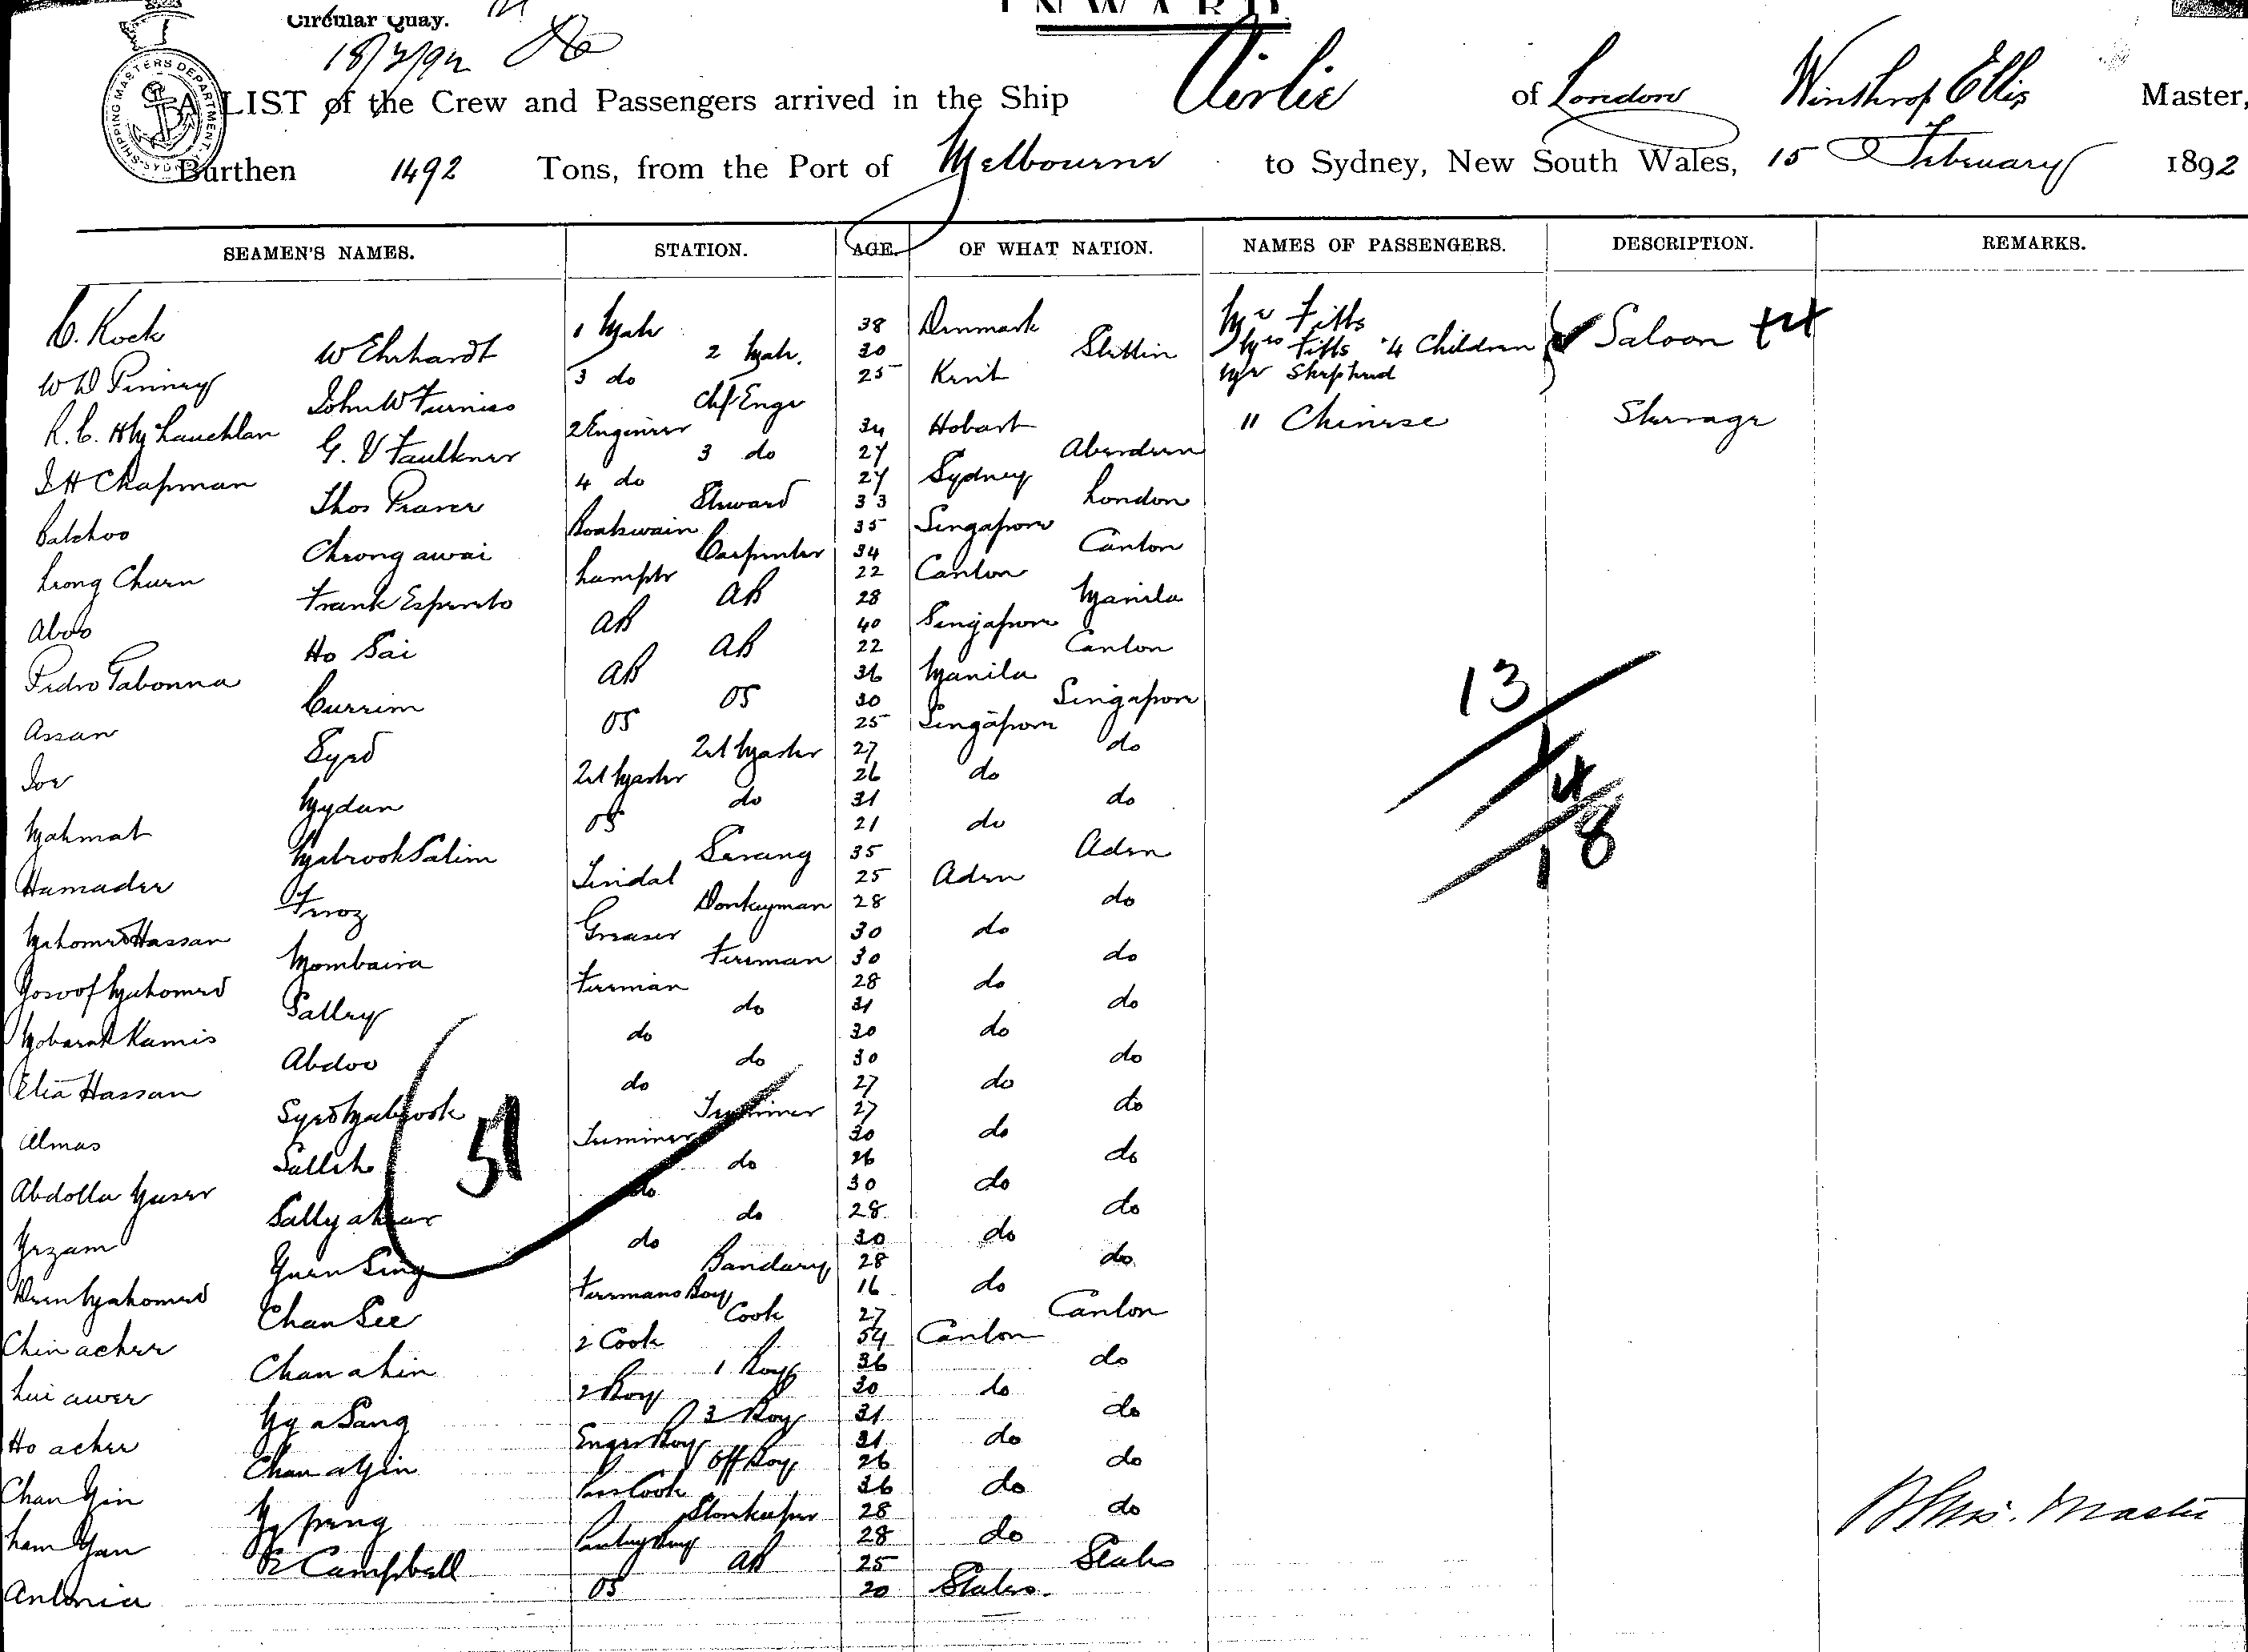 INWARD
Circular Quay.
18/2/92
SHIPPING MASTERS DEPARTMENT · SYDNEY
A LIST of the Crew and Passengers arrived in the Ship Airlie of London Winthrop Ellis Master,
Burthen 1492 Tons, from the Port of Melbourne to Sydney, New South Wales, 15 February 1892
SEAMEN'S NAMES. STATION. AGE. OF WHAT NATION. NAMES OF PASSENGERS. DESCRIPTION. REMARKS.
C. Kock 1 Mate 38 Denmark Mr Fitts
W Ehrhardt 2 Mate. 30 Stettin Mrs Fitts 4 Children Saloon
W D Pinney 3 do 25 Kent Mr Shephard
John W Furniss Chf Engr
R. C. McLauchlan 2 Engineer 34 Hobart 11 Chinese Steerage
G. V Faulkner 3 do 27 Aberdeen
J H Chapman 4 do 27 Sydney
Thos Praver Steward 33 London
Balchoo Boatswain 35 Singapore
Cheong awai Carpenter 34 Canton
Leong Churn Lamptr 22 Canton
Frank Esperito AB 28 Manila
Aboo AB 40 Singapore
Ho Sai AB 22 Canton
Pedro Tabonna AB 36 Manila
Currim OS 30 Singapore
Assan OS 25 Singapore
Syed 2rt Master 27 do
Joe 2rt Master 26 do
Mydan do 31 do
Mahmat OS 21 do
Mabrook Salim Serang 35 Aden
Hamader Tindal 25 Aden
Feroz Donkeyman 28 do
Mahomed Hassan Greaser 30 do
Mombaira Fireman 30 do
Yosoof Mahomed Fireman 28 do
Salley do 31 do
Mobarak Kamis do 30 do
Abdoo do 30 do
Elia Hassan do 27 do
Syed Mabrook Trimmer 27 do
Almas Trimmer 30 do
Salleh do 26 do
Abdolla Yuser do 30 do
Sally do 28 do
Yezam do 30 do
Yuen Sing Bandary 28 do
Deen Mahomed Firemans Boy 16 do
Chan See Cook 27 Canton
Chin acher 2 Cook 54 Canton
Chan a hin 1 Boy 36 do
Lui awer 2 Boy 30 do
Ng a Sang 3 Boy 31 do
Ho acher Engrs Boy 31 do
Chan a Yin Off Boy 26 do
Chan Yin Pass Cook 36 do
Ng peng Storekeeper 28 do
Lam Yan Pantry Boy 28 do
Campbell AB 25 States
Antonia OS 20 States.
51
13
1
4
18
W Ellis. Master